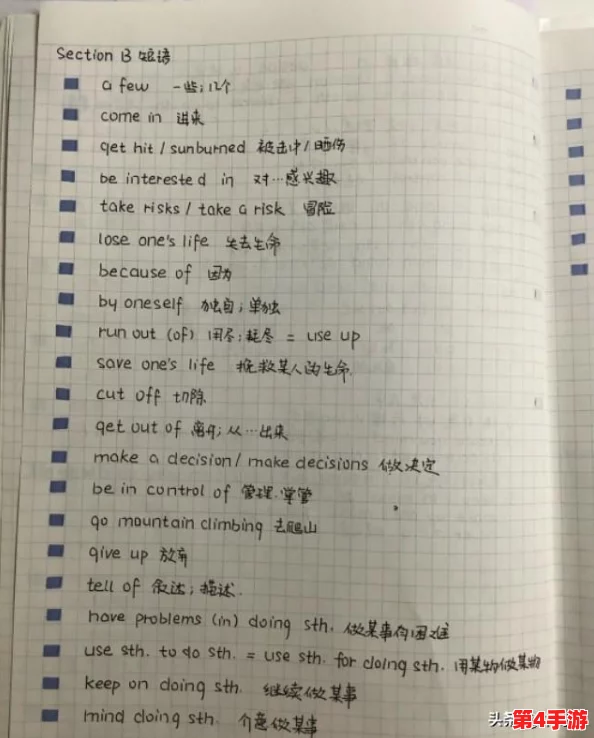 Section B 短语
a few 一些；几个
come in 进来
get hit / sunburned 被击中 / 晒伤
be interested in 对…感兴趣
take risks / take a risk 冒险
lose one's life 失去生命
because of 因为
by oneself 独自；单独
run out (of) 用尽；耗尽 = use up
save one's life 挽救某人的生命.
cut off 切除
get out of 离开；从…出来
make a decision / make decisions 做决定
be in control of 管理.掌管
go mountain climbing 去爬山
give up 放弃
tell of 叙述；描述.
have problems (in) doing sth. 做某事有困难
use sth. to do sth. = use sth. for doing sth. 用某物做某物
keep on doing sth. 继续做某事
mind doing sth. 介意做某事
头条
第4手游